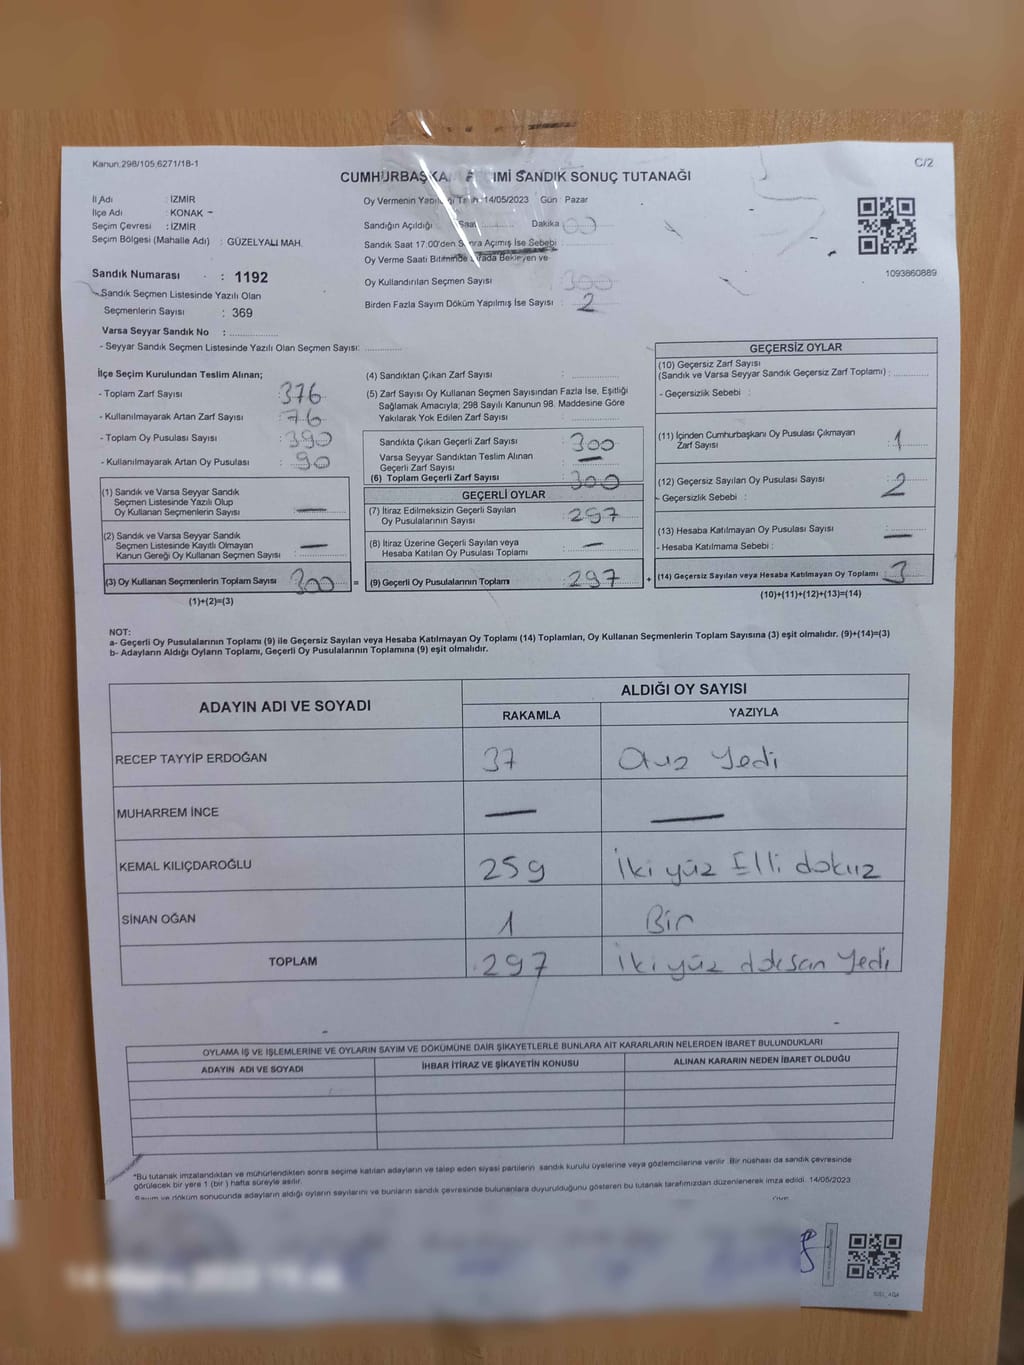 Kanun.298/105,6271/18-1
C/2
CUMHURBAŞKA İMİ SANDIK SONUÇ TUTANAĞI
İl Adı : İZMİR
İlçe Adı : KONAK
Seçim Çevresi : İZMİR
Seçim Bölgesi (Mahalle Adı) : GÜZELYALI MAH.
Sandık Numarası : 1192
Sandık Seçmen Listesinde Yazılı Olan
Seçmenlerin Sayısı : 369
Varsa Seyyar Sandık No :
- Seyyar Sandık Seçmen Listesinde Yazılı Olan Seçmen Sayısı:
Oy Vermenin 14/05/2023 Gün : Pazar
Sandığın Açıldığı Saat Dakika 00
Sandık Saat 17:00'den Sonra Açımış İse Sebebi
Oy Verme Saati Bitiminde Sırada Bekleyen ve
Oy Kullandırılan Seçmen Sayısı 300
Birden Fazla Sayım Döküm Yapılmış İse Sayısı 2
1093860889
İlçe Seçim Kurulundan Teslim Alınan;
- Toplam Zarf Sayısı : 376
- Kullanılmayarak Artan Zarf Sayısı : 76
- Toplam Oy Pusulası Sayısı : 390
- Kullanılmayarak Artan Oy Pusulası : 90
(1) Sandık ve Varsa Seyyar Sandık
Seçmen Listesinde Yazılı Olup
Oy Kullanan Seçmenlerin Sayısı : —
(2) Sandık ve Varsa Seyyar Sandık
Seçmen Listesinde Kayıtlı Olmayan
Kanun Gereği Oy Kullanan Seçmen Sayısı : —
(3) Oy Kullanan Seçmenlerin Toplam Sayısı 300 =
(1)+(2)=(3)
(4) Sandıktan Çıkan Zarf Sayısı :
(5) Zarf Sayısı Oy Kullanan Seçmen Sayısından Fazla İse, Eşitliği
Sağlamak Amacıyla; 298 Sayılı Kanunun 98. Maddesine Göre
Yakılarak Yok Edilen Zarf Sayısı :
Sandıkta Çıkan Geçerli Zarf Sayısı : 300
Varsa Seyyar Sandıktan Teslim Alınan
Geçerli Zarf Sayısı : —
(6) Toplam Geçerli Zarf Sayısı : 300
GEÇERLİ OYLAR
(7) İtiraz Edilmeksizin Geçerli Sayılan
Oy Pusulalarının Sayısı : 297
(8) İtiraz Üzerine Geçerli Sayılan veya
Hesaba Katılan Oy Pusulası Toplamı : —
(9) Geçerli Oy Pusulalarının Toplamı : 297 +
GEÇERSİZ OYLAR
(10) Geçersiz Zarf Sayısı
(Sandık ve Varsa Seyyar Sandık Geçersiz Zarf Toplamı) :
- Geçersizlik Sebebi :
(11) İçinden Cumhurbaşkanı Oy Pusulası Çıkmayan
Zarf Sayısı : 1
(12) Geçersiz Sayılan Oy Pusulası Sayısı : 2
- Geçersizlik Sebebi :
(13) Hesaba Katılmayan Oy Pusulası Sayısı : —
- Hesaba Katılmama Sebebi :
(14) Geçersiz Sayılan veya Hesaba Katılmayan Oy Toplamı : 3
(10)+(11)+(12)+(13)=(14)
NOT:
a- Geçerli Oy Pusulalarının Toplamı (9) ile Geçersiz Sayılan veya Hesaba Katılmayan Oy Toplamı (14) Toplamları, Oy Kullanan Seçmenlerin Toplam Sayısına (3) eşit olmalıdır. (9)+(14)=(3)
b- Adayların Aldığı Oyların Toplamı, Geçerli Oy Pusulalarının Toplamına (9) eşit olmalıdır.
ADAYIN ADI VE SOYADI
ALDIĞI OY SAYISI
RAKAMLA YAZIYLA
RECEP TAYYİP ERDOĞAN 37 Otuz Yedi
MUHARREM İNCE — —
KEMAL KILIÇDAROĞLU 259 İki yüz Elli dokuz
SİNAN OĞAN 1 Bir
TOPLAM 297 İki yüz doksan Yedi
OYLAMA İŞ VE İŞLEMLERİNE VE OYLARIN SAYIM VE DÖKÜMÜNE DAİR ŞİKAYETLERLE BUNLARA AİT KARARLARIN NELERDEN İBARET BULUNDUKLARI
ADAYIN ADI VE SOYADI İHBAR İTİRAZ VE ŞİKAYETİN KONUSU ALINAN KARARIN NEDEN İBARET OLDUĞU
*Bu tutanak imzalandıktan ve mühürlendikten sonra seçime katılan adayların ve talep eden siyasi partilerin sandık kurulu üyelerine veya gözlemcilerine verilir. Bir nüshası da sandık çevresinde
görülecek bir yere 1 (bir ) hafta süreyle asılır.
Sayım ve döküm sonucunda adayların aldığı oyların sayılarını ve bunların sandık çevresinde bulunanlara duyurulduğunu gösteren bu tutanak tarafımızdan düzenlenerek imza edildi. 14/05/2023